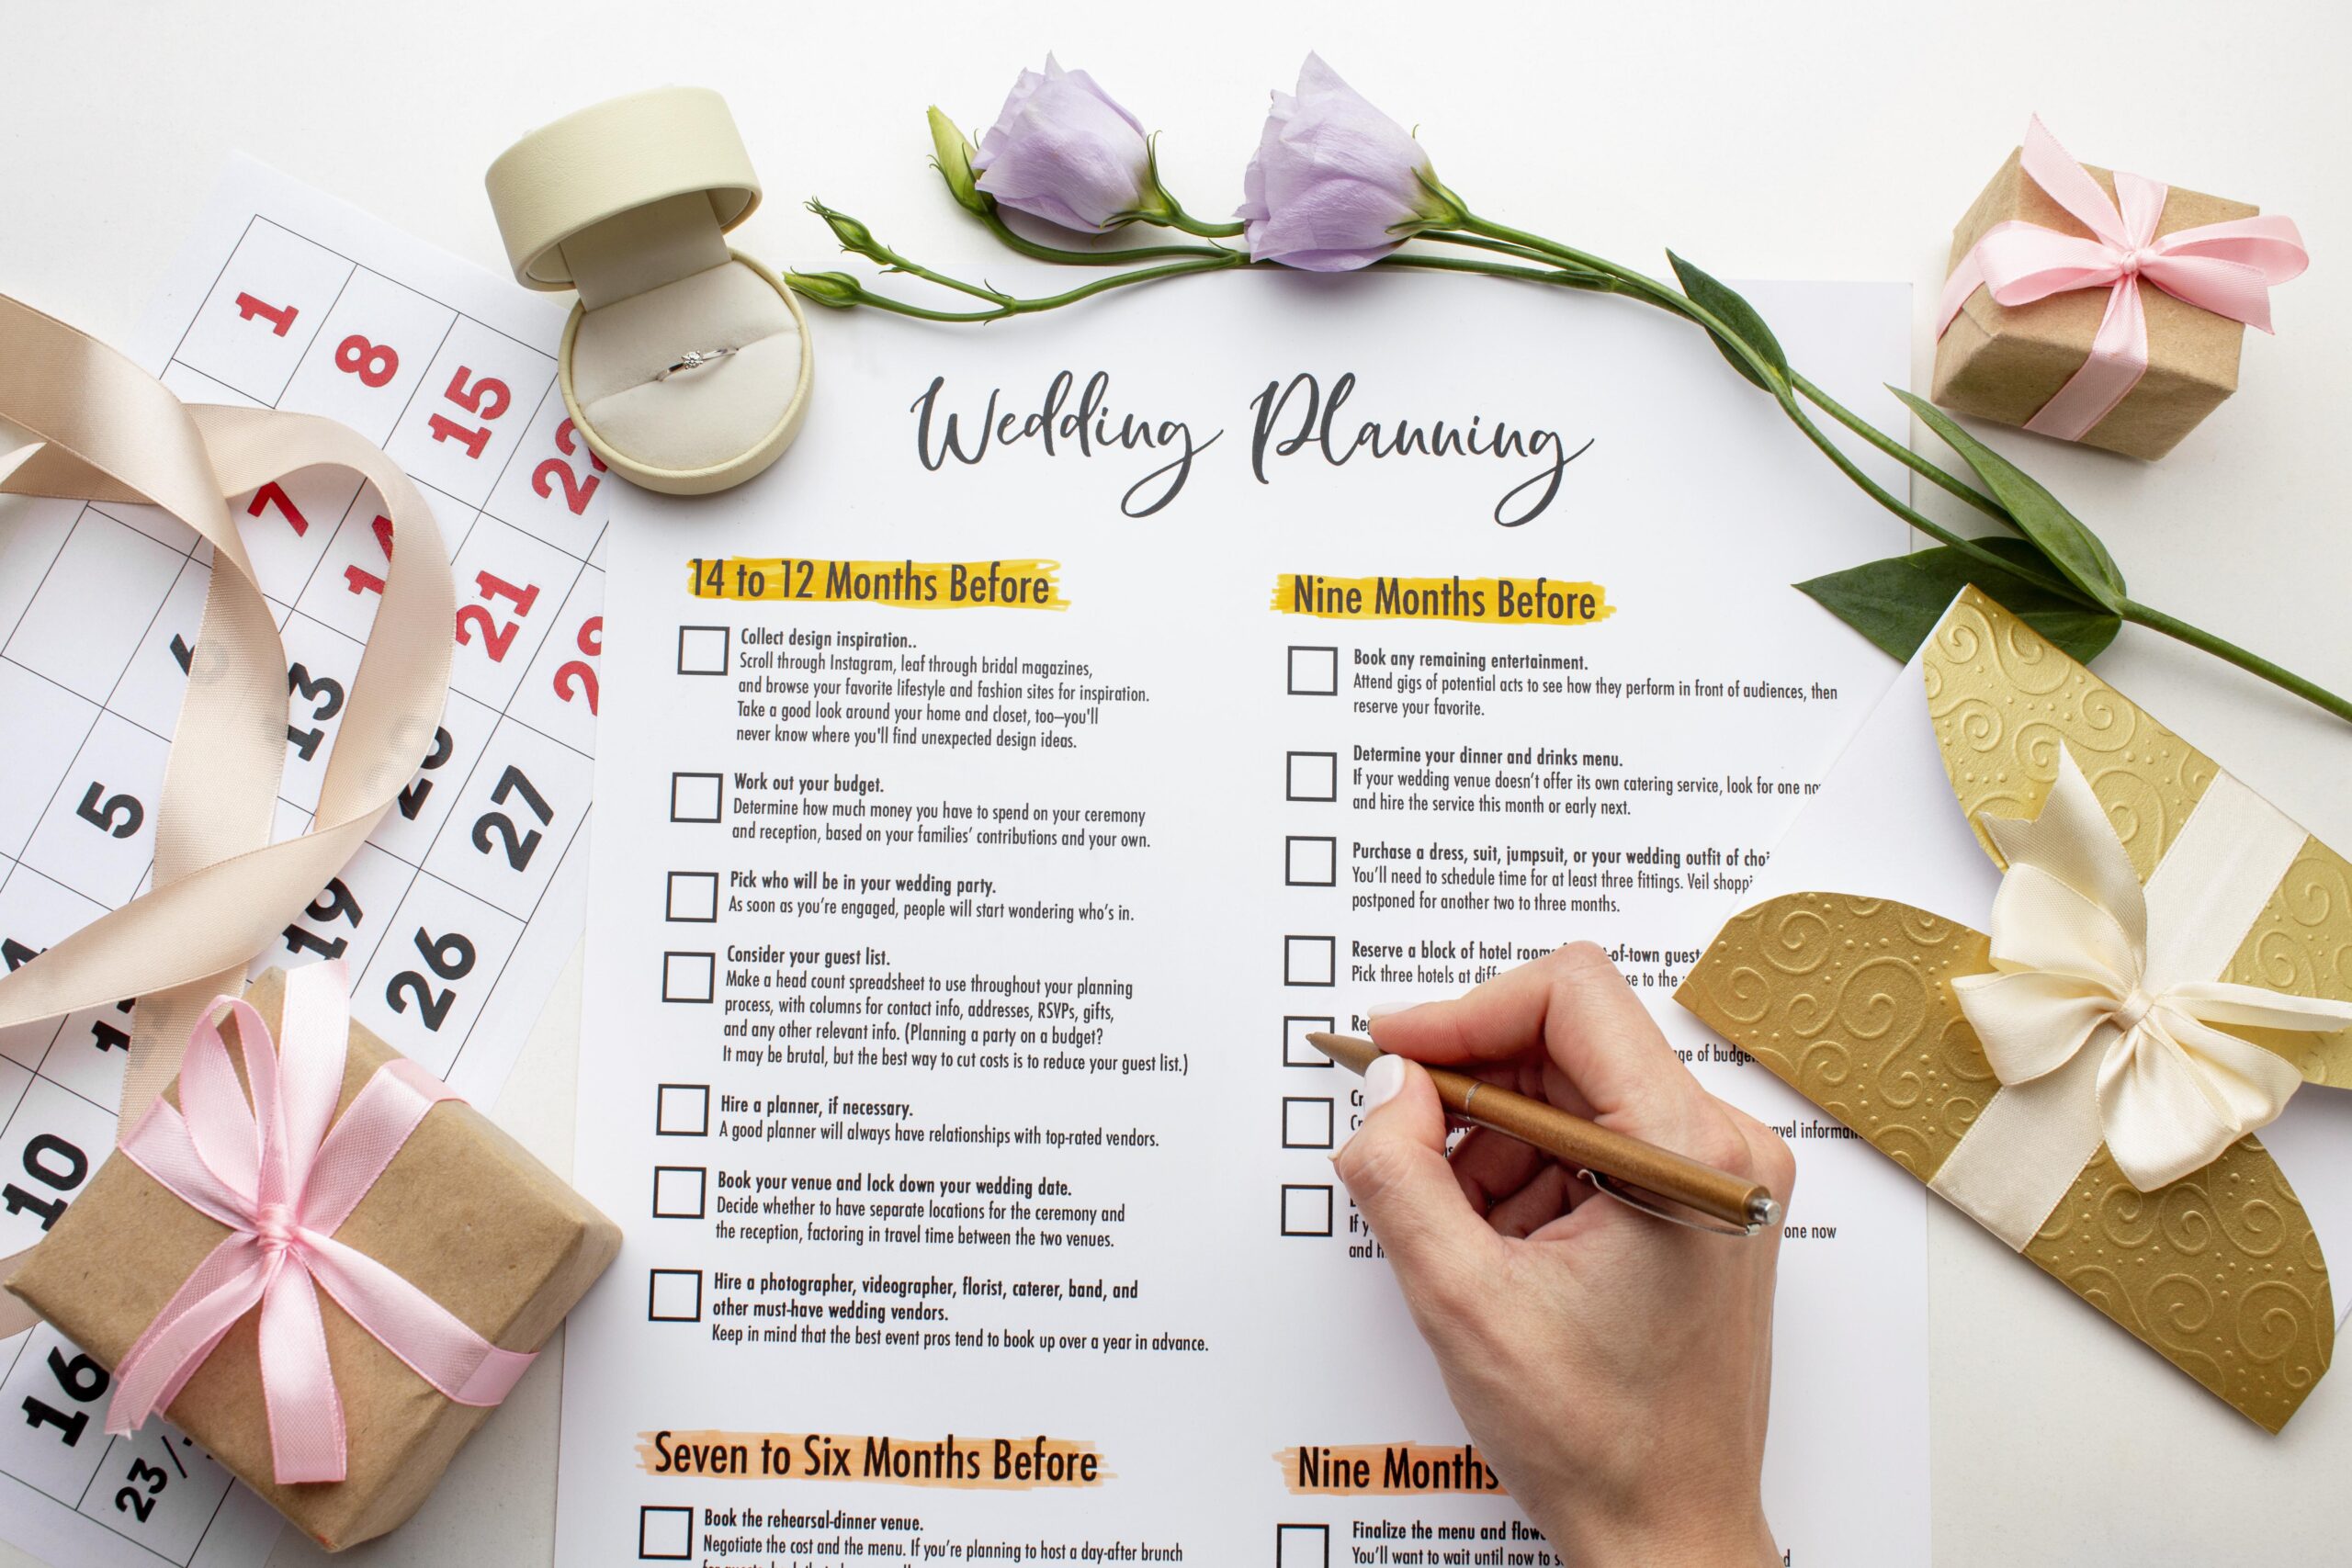 Wedding Planning
14 to 12 Months Before
Collect design inspiration..
Scroll through Instagram, leaf through bridal magazines,
and browse your favorite lifestyle and fashion sites for inspiration.
Take a good look around your home and closet, too—you'll
never know where you'll find unexpected design ideas.
Work out your budget.
Determine how much money you have to spend on your ceremony
and reception, based on your families' contributions and your own.
Pick who will be in your wedding party.
As soon as you're engaged, people will start wondering who's in.
Consider your guest list.
Make a head count spreadsheet to use throughout your planning
process, with columns for contact info, addresses, RSVPs, gifts,
and any other relevant info. (Planning a party on a budget?
It may be brutal, but the best way to cut costs is to reduce your guest list.)
Hire a planner, if necessary.
A good planner will always have relationships with top-rated vendors.
Book your venue and lock down your wedding date.
Decide whether to have separate locations for the ceremony and
the reception, factoring in travel time between the two venues.
Hire a photographer, videographer, florist, caterer, band, and
other must-have wedding vendors.
Keep in mind that the best event pros tend to book up over a year in advance.
Seven to Six Months Before
Book the rehearsal-dinner venue.
Negotiate the cost and the menu. If you're planning to host a day-after brunch
Nine Months Before
Book any remaining entertainment.
Attend gigs of potential acts to see how they perform in front of audiences, then
reserve your favorite.
Determine your dinner and drinks menu.
If your wedding venue doesn't offer its own catering service, look for one
and hire the service this month or early next.
Purchase a dress, suit, jumpsuit, or your wedding outfit of
You'll need to schedule time for at least three fittings. Veil
postponed for another two to three months.
Reserve a block of hotel of-town
Pick three hotels at to the
of
If
and
one now
Nine Months
Finalize the menu and
You'll want to wait until now to
1
8
15
22
7
14
21
28
6
13
20
27
5
19
26
10
16
23/